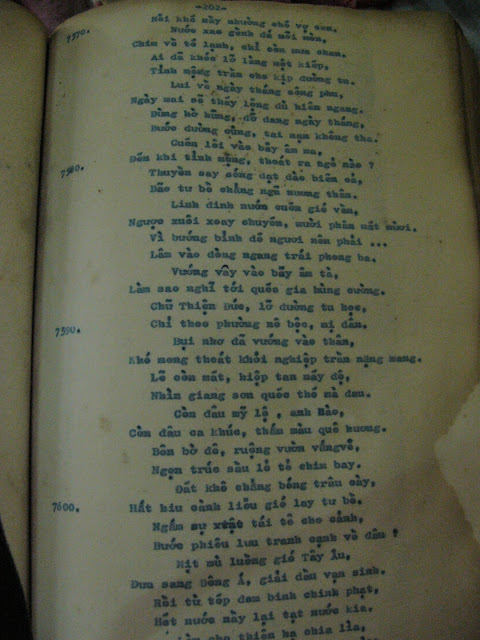 -202-
7570. Nỗi khổ này nhường chỗ vợ son.
Nước xao gành đá nỗi mòn,
Chim về tổ lạnh, chỉ còn mưa chan.
Ai đã khóc lỡ làng một kiếp,
Tỉnh mộng trần cho kịp đường tu.
Lui về ngày tháng công phu,
Ngày mai sẽ thấy lộng dù hiên ngang.
Đừng hờ hững, dở dang ngày tháng,
Bước đường cùng, tai nạn không tha.
Cuốn lôi vào bẫy âm ma,
7580. Đến khi tỉnh mộng, thoát ra ngõ nào ?
Thuyền say sóng dạt dào biển cả,
Dẫu tư bề chẳng ngã nương thân.
Linh đinh nước cuốn gió vần,
Ngược xuôi xoay chuyển, mười phần mất mười.
Vì bướng bỉnh đố ngươi nên phải ...
Lâm vào dòng ngang trái phong ba.
Vướng vây vào bẫy âm tà,
Làm sao nghĩ tới quốc gia hùng cường.
Chữ Thiện Đức, lỡ đường tu học,
7590. Chỉ theo phường nô bộc, ai dân.
Bụi nhơ đã vướng vào thân,
Khó mong thoát khỏi nghiệp trần nặng mang.
Lẽ còn mất, hiệp tan mấy độ,
Nhìn giang sơn quốc thổ mà đau.
Còn đâu mỹ lệ , anh hào,
Còn đâu ca khúc, thắm màu quê hương.
Bốn bờ đê, ruộng vườn vắngvẻ,
Ngọn trúc sầu lẻ tẻ chim bay.
Đất khô chẳng bóng trâu cày,
7600. Hắt hiu cành liễu gió lay tư bề.
Ngẩm sự tái tê cho cảnh,
Bước phiêu lưu tranh cạnh về đâu ?
Mịt mù luồng gió Tây Âu,
Đưa sang Đông Á, giải dầu vạn sinh.
Rồi từ tốp đem binh chinh phạt,
Hết nước này lại tạt nước kia.
Làm cho thiên hạ chia lìa,